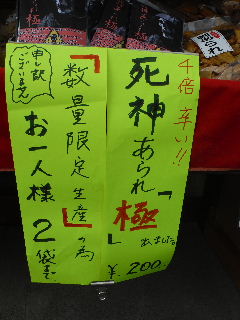 4倍辛い!!
死神あられ
「極」
出ました。
¥200.
『数量限定生産』の為
お一人様2袋まで
申し訳
ございません
あられ